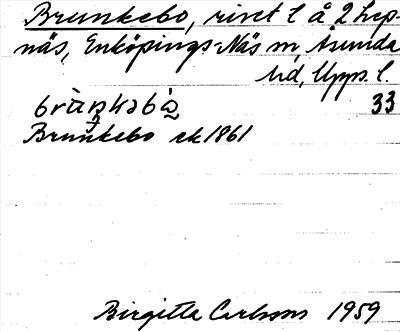 Brunkebo, rivet t å 2 hep-
näs, Enköpings-Näs sn, Åsunda
hd, Upps. l.
33
Brunkebo ek 1861
Birgitta Carlsson 1959